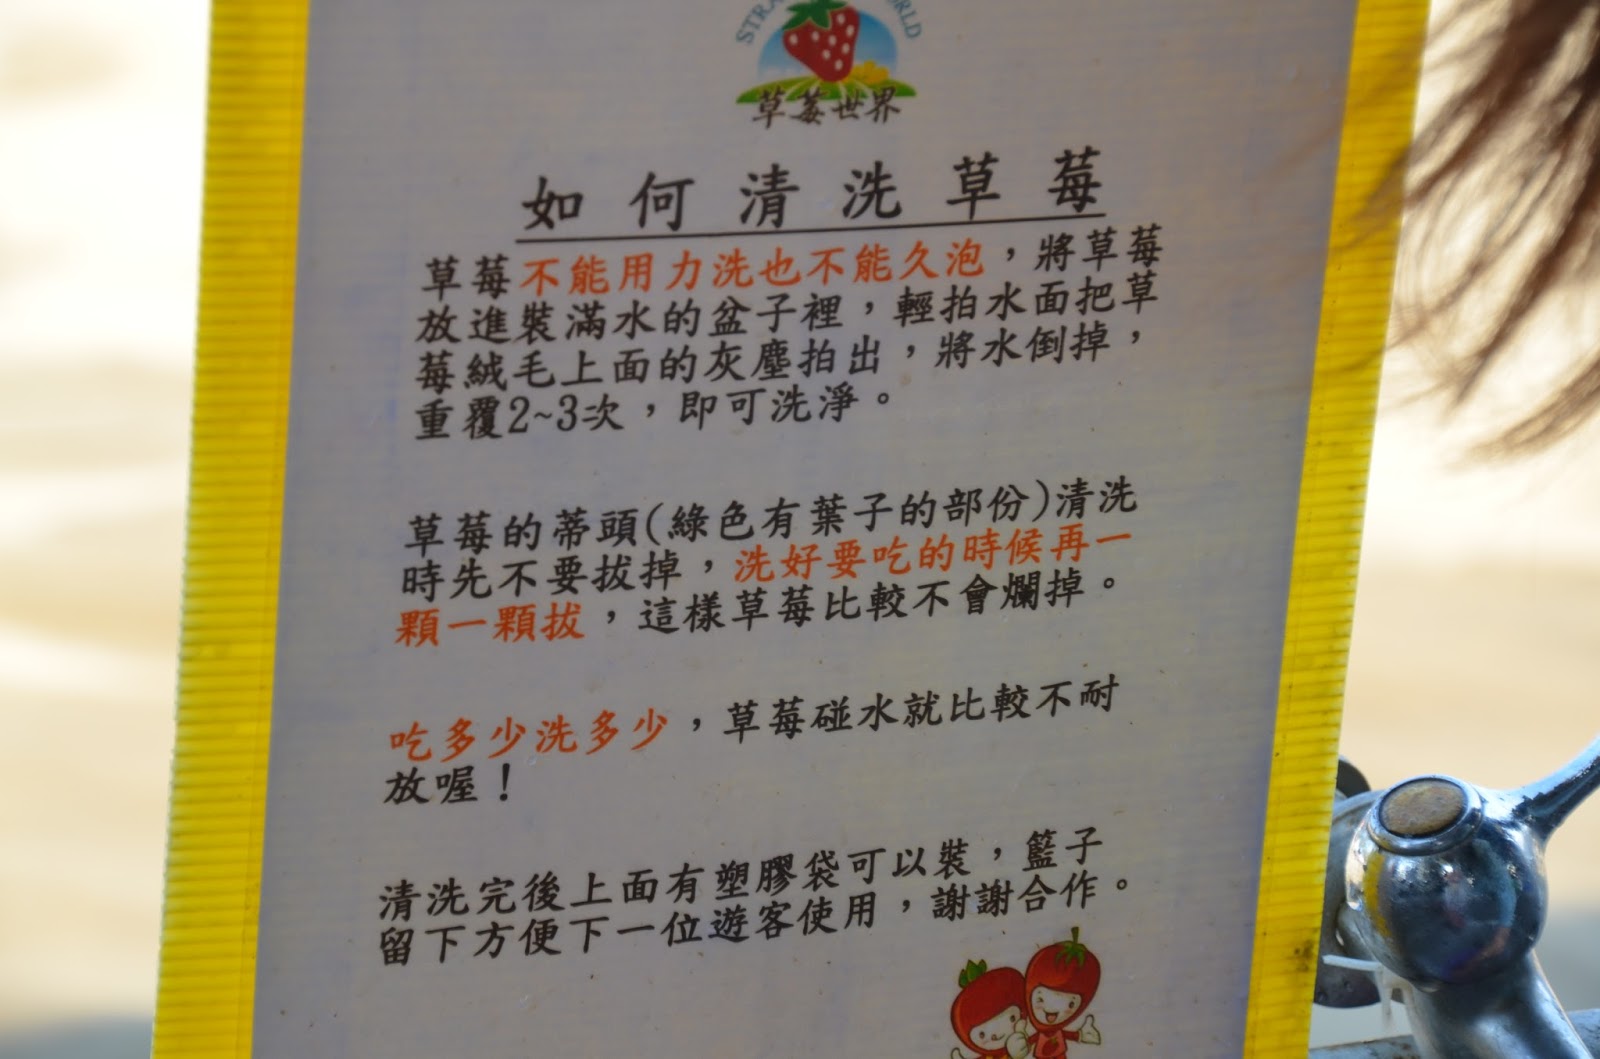 草莓世界
如何清洗草莓
草莓不能用力洗也不能久泡，將草莓
放進裝滿水的盆子裡，輕拍水面把草
莓絨毛上面的灰塵拍出，將水倒掉，
重覆2~3次，即可洗淨。
草莓的蒂頭(綠色有葉子的部份)清洗
時先不要拔掉，洗好要吃的時候再一
顆一顆拔，這樣草莓比較不會爛掉。
吃多少洗多少，草莓碰水就比較不耐
放喔！
清洗完後上面有塑膠袋可以裝，籃子
留下方便下一位遊客使用，謝謝合作。